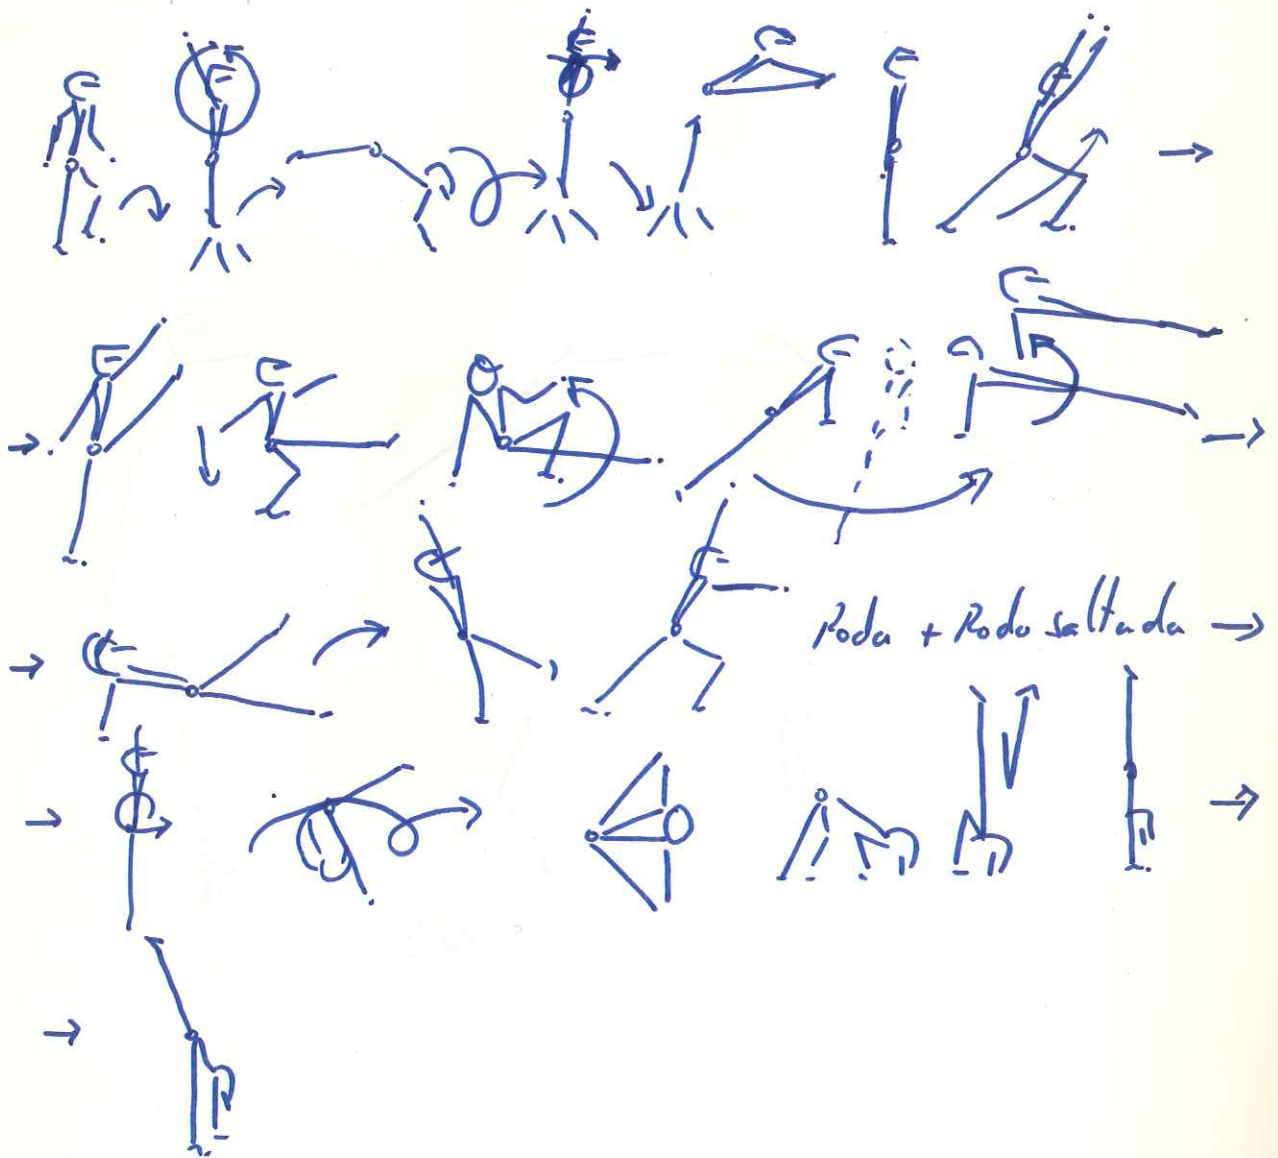 Roda + Roda saltada